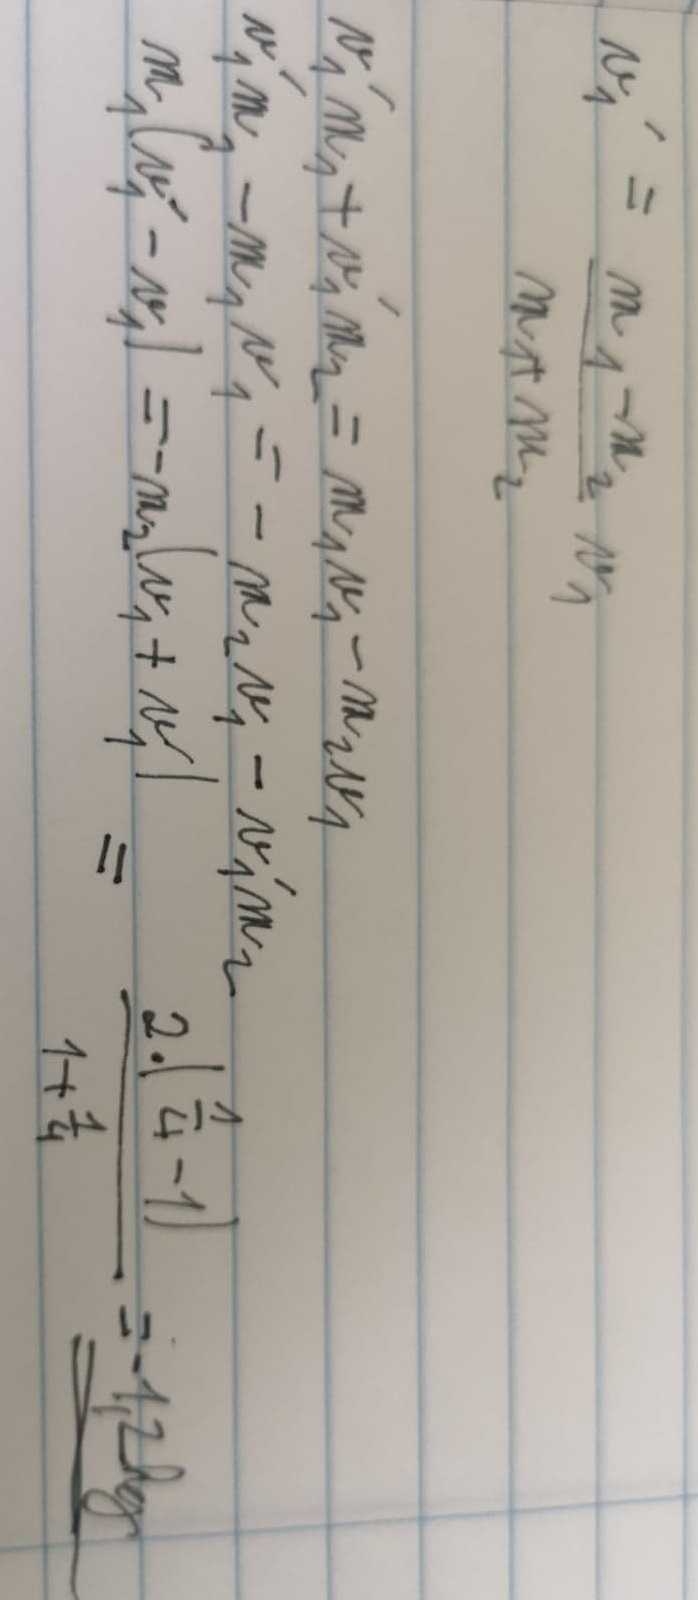 v₁' = (m₁ - m₂)/(m₁ + m₂) v₁
v₁'m₁ + v₁'m₂ = m₁v₁ - m₂v₁
v₁'m₁ - m₁v₁ = - m₂v₁ - v₁'m₂
m₁(v₁' - v₁) = - m₂(v₁ + v₁) = (2·(1/4 - 1))/(1 + 1/4) = -1,2 kg